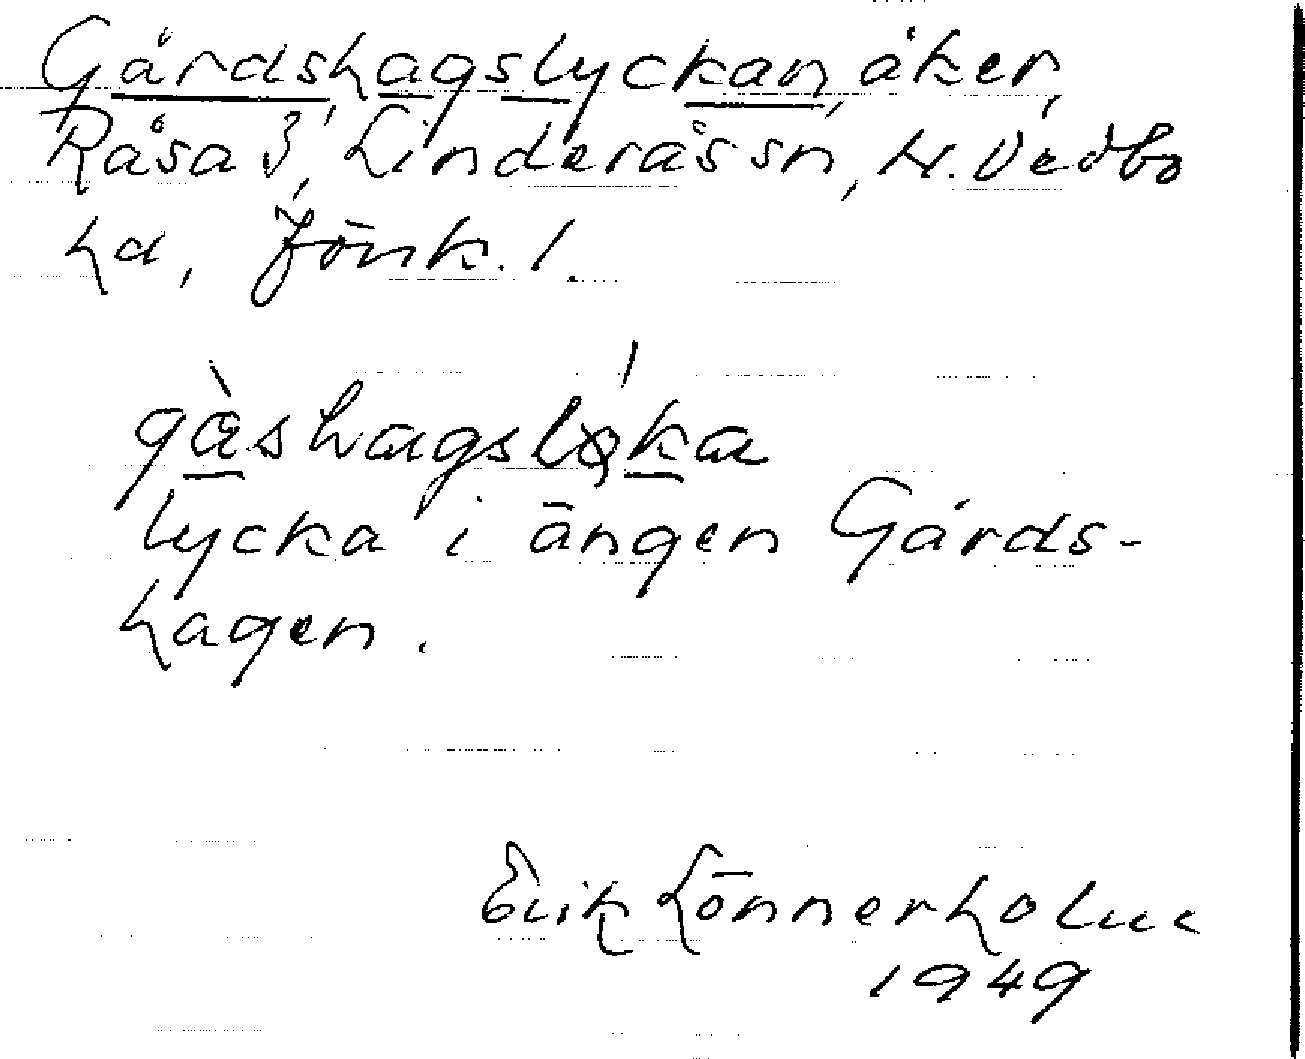 Gårdshagslyckan, åker,
Råsa 3, Linderås sn, N. Vedbo
hd, Jönk. l.
gàshagslǫ́ka
lycka i ängen Gårds-
hagen.
Erik Lönnerholm
1949